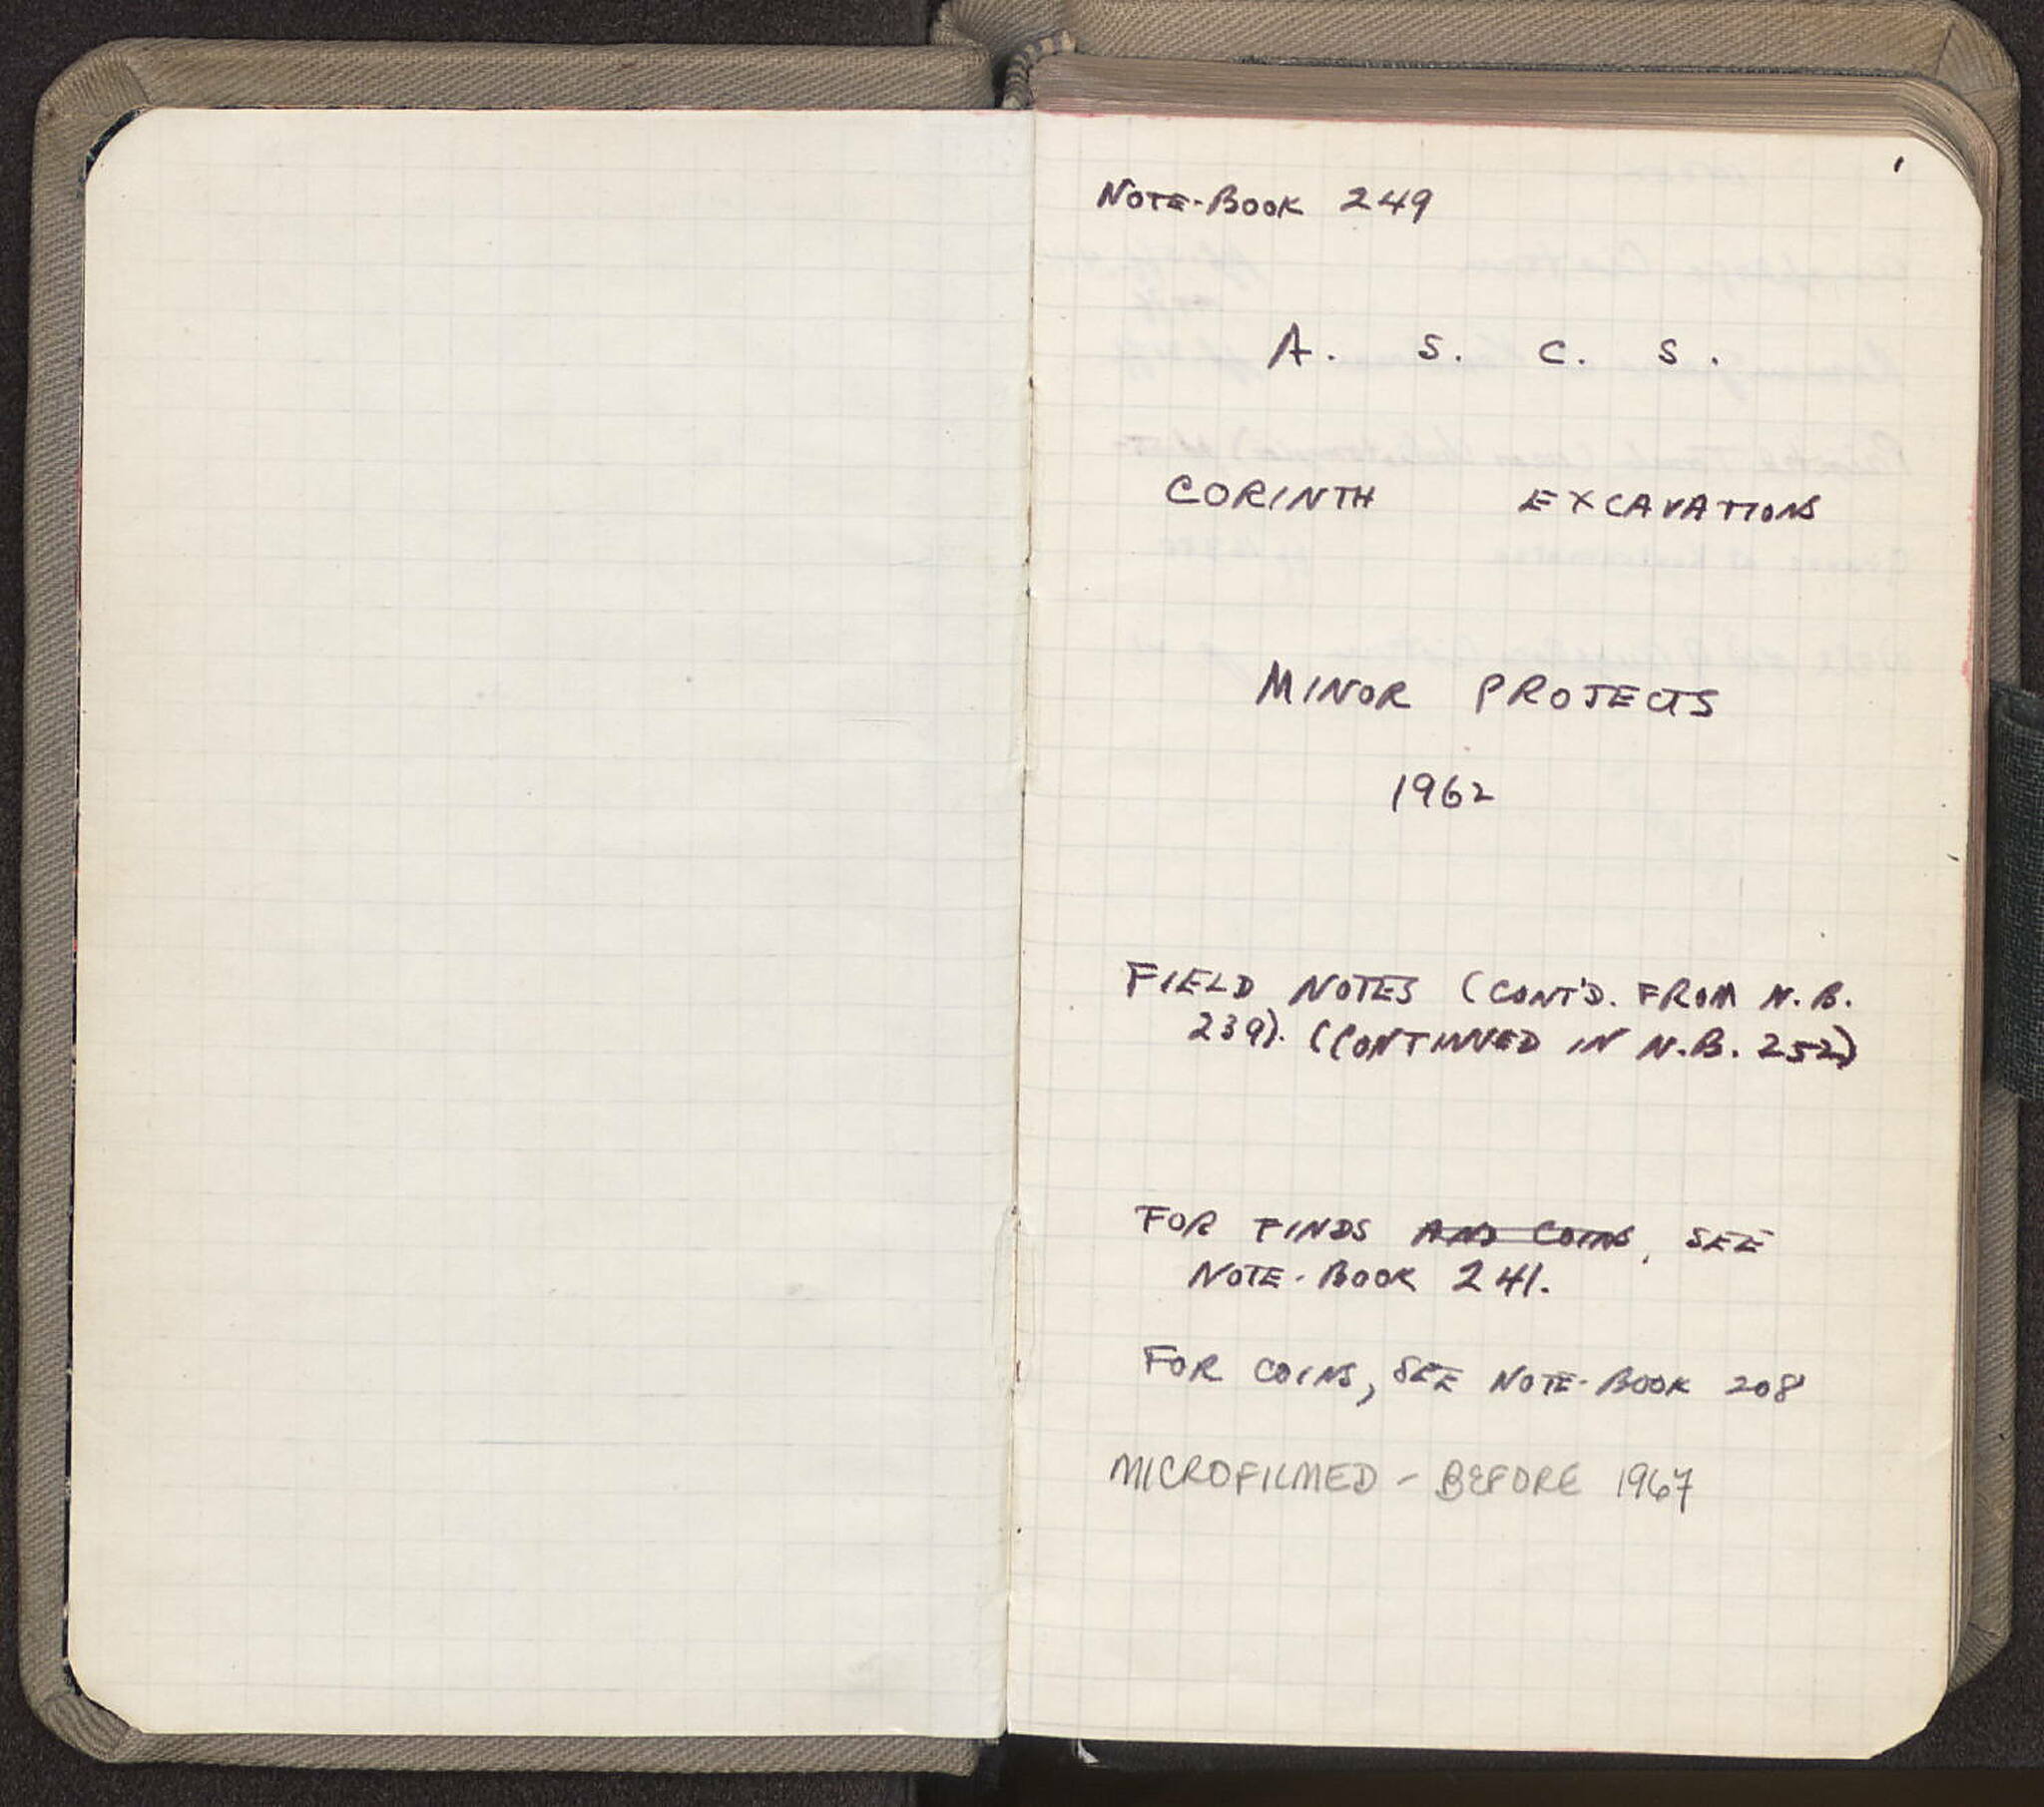 1
NOTE-BOOK 249
A. S. C. S.
CORINTH EXCAVATIONS
MINOR PROJECTS
1962
FIELD NOTES (CONT'D. FROM N.B.
239). (CONTINUED IN N.B. 252)
FOR FINDS AND COINS, SEE
NOTE-BOOK 241.
FOR COINS, SEE NOTE-BOOK 208
MICROFILMED - BEFORE 1967